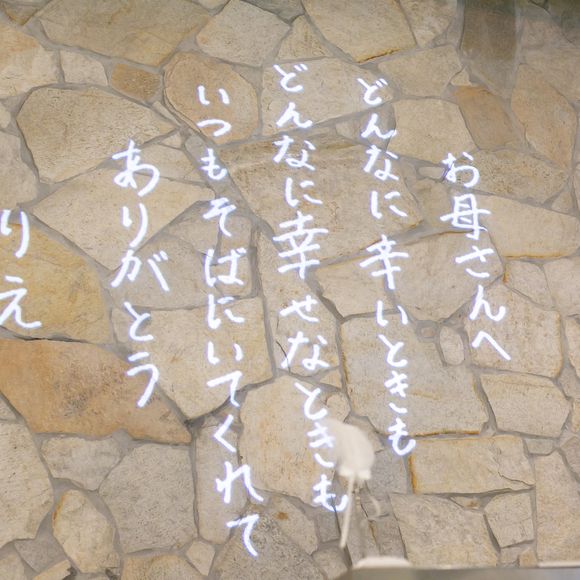 お母さんへ
どんなに辛いときも
どんなに幸せなときも
いつもそばにいてくれて
ありがとう
りえ